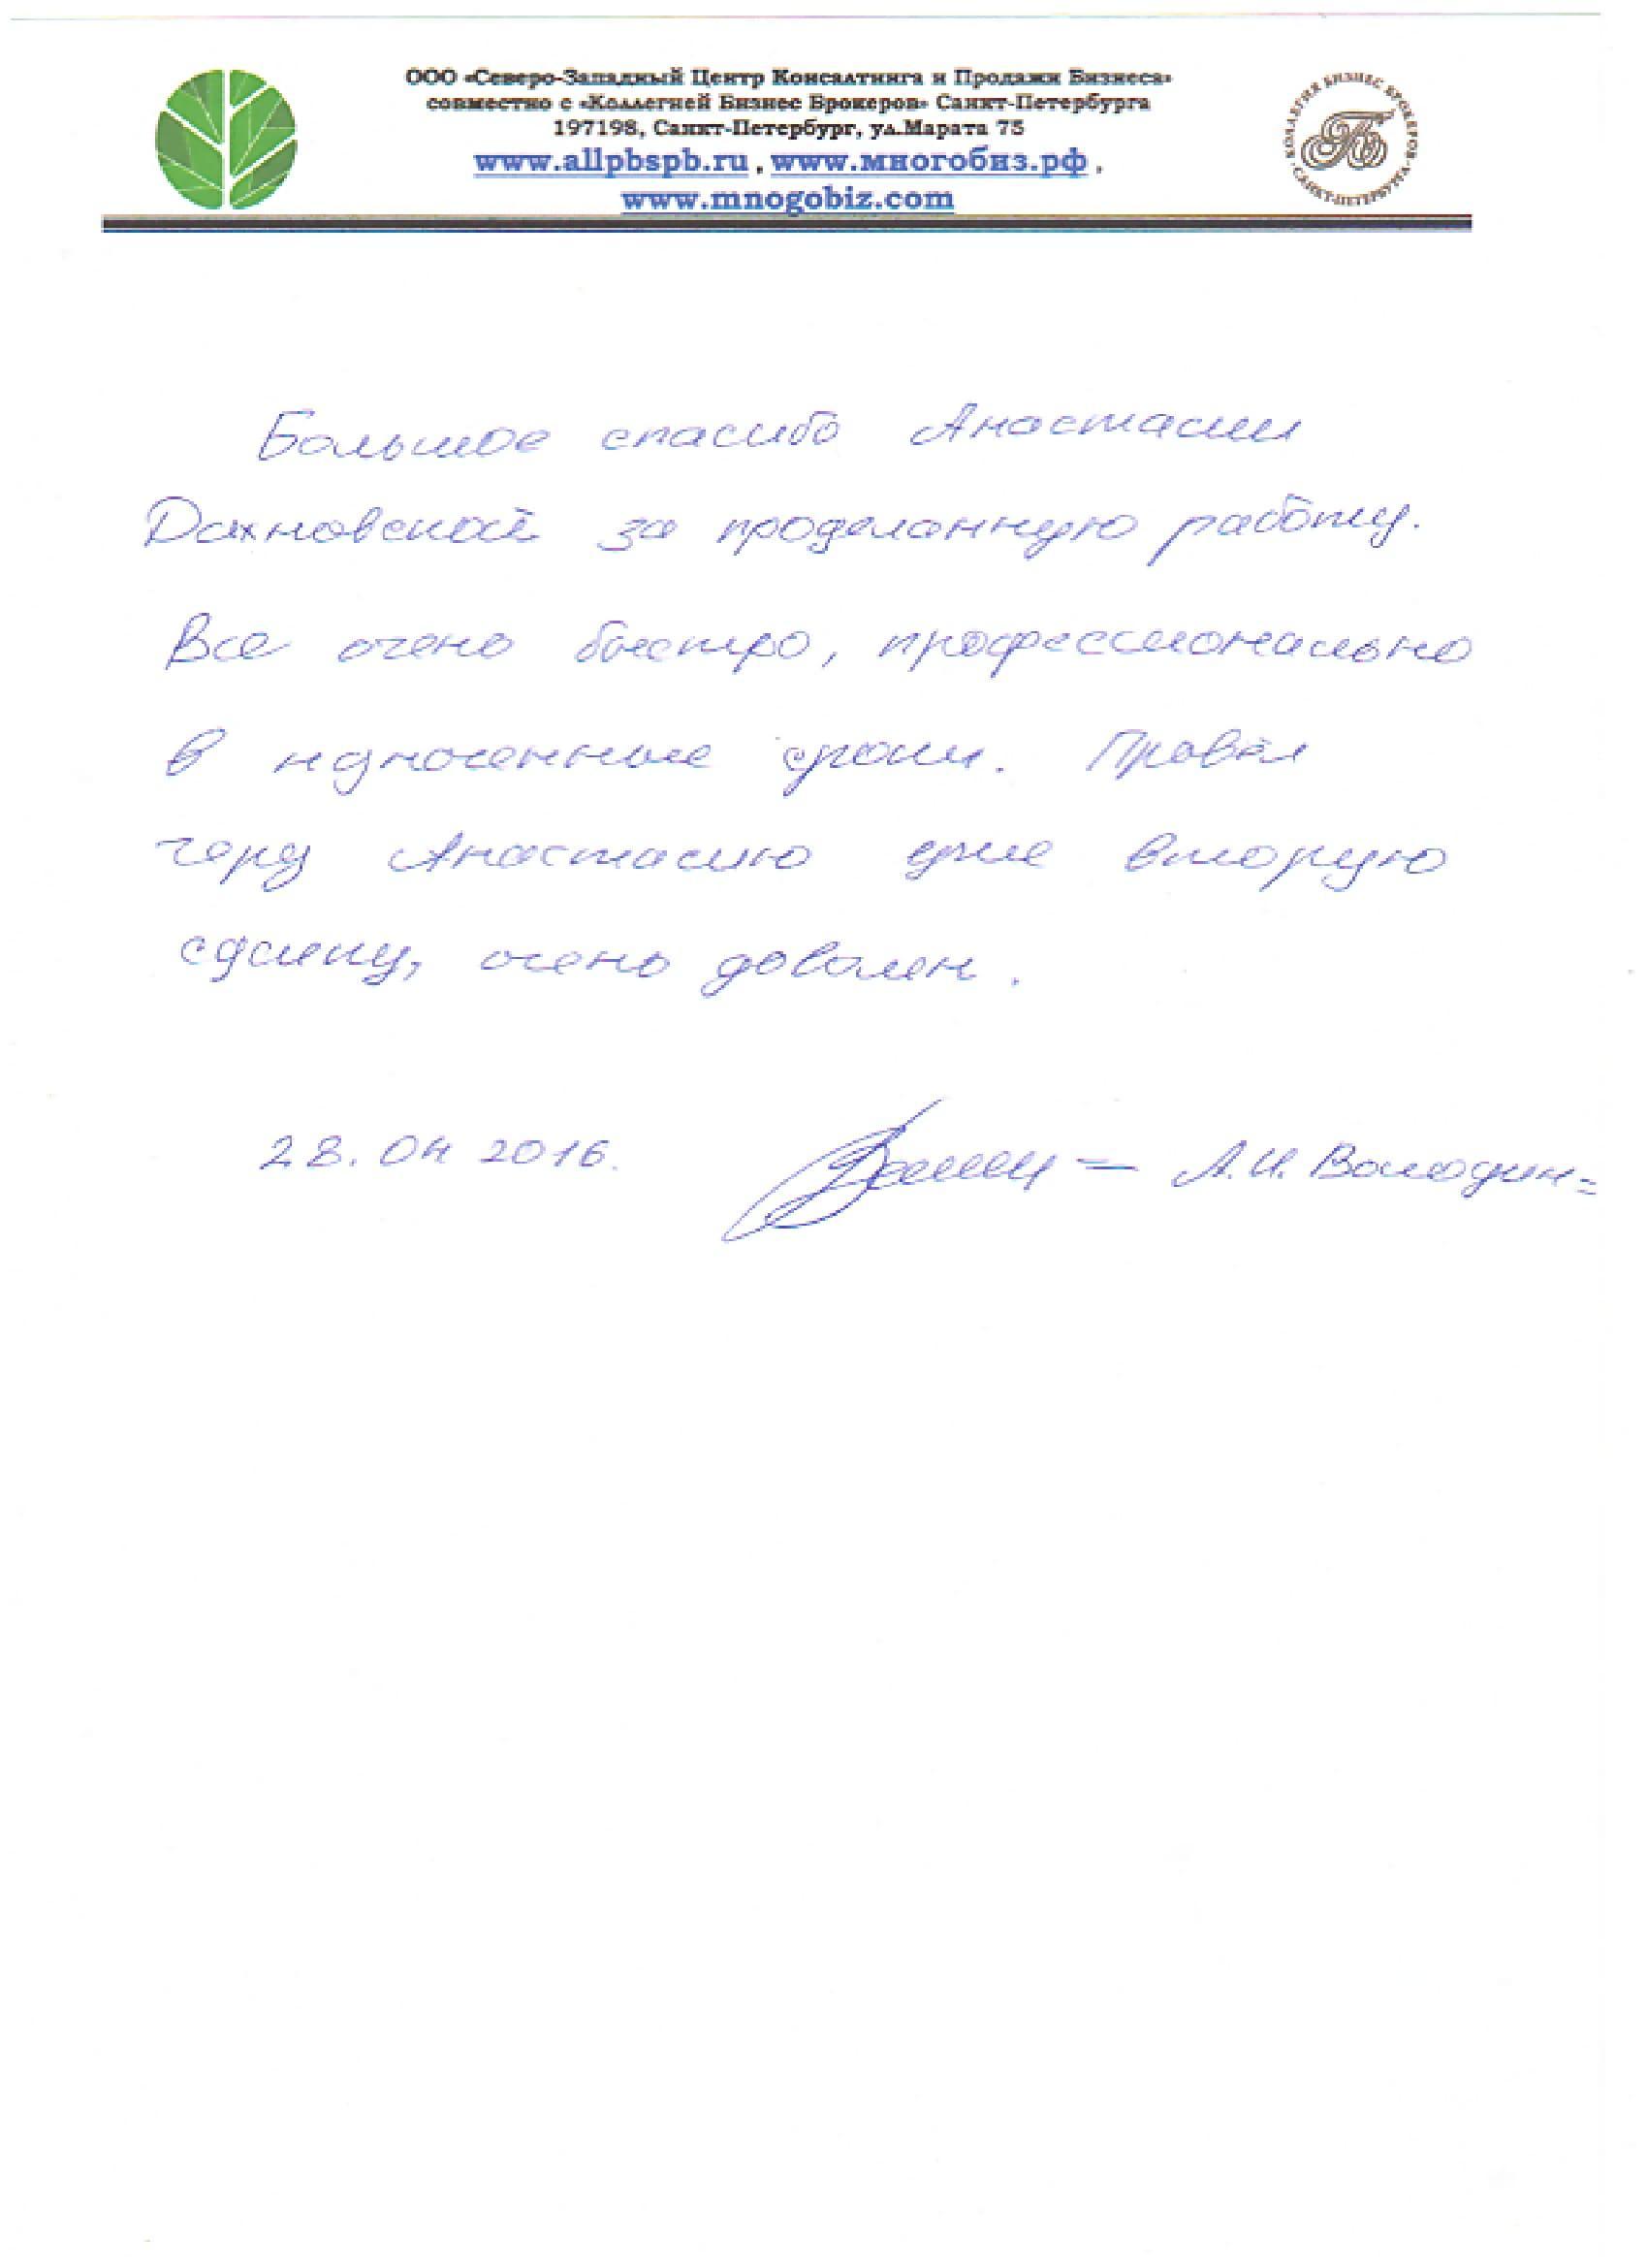 ООО «Северо-Западный Центр Консалтинга и Продажи Бизнеса»
совместно с «Коллегией Бизнес Брокеров» Санкт-Петербурга
197198, Санкт-Петербург, ул.Марата 75
www.allpbspb.ru , www.многобиз.рф ,
www.mnogobiz.com
КОЛЛЕГИЯ БИЗНЕС БРОКЕРОВ
САНКТ-ПЕТЕРБУРГА
Большое спасибо Анастасии
Дахновской за проделанную работу.
Все очень быстро, профессионально
в назначенные сроки. Провёл
через Анастасию уже вторую
сделку, очень доволен.
28.04 2016.
Л.И. Володин